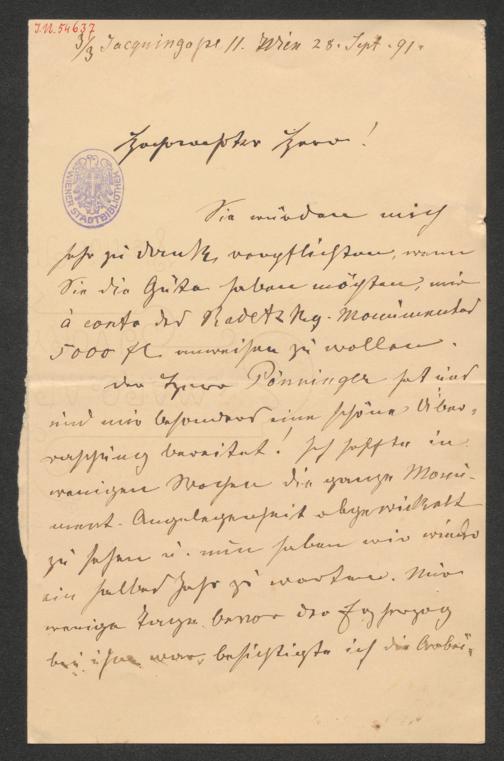 J.N. 54637
3/3 Jacquingasse 11. Wien 28. Sept. 91.
Hochverehrter Herr!
WIENER STADTBIBLIOTHEK
Sie würden mich
sehr zu Dank verpflichten, wenn
Sie die Güte haben möchten, mir
à conto des Radetzky-Monumentes
5000 fl anweisen zu wollen.
Der Herr Pönninger hat uns
und mir besonders eine schöne Über-
raschung bereitet! Ich hoffte in
wenigen Wochen die ganze Monu-
ment-Angelegenheit abgewickelt
zu sehen u. nun haben wir wieder
ein halbes Jahr zu warten. Nur
wenige Tage bevor der Erzherzog
bei ihm war, besichtigte ich die Arbei-